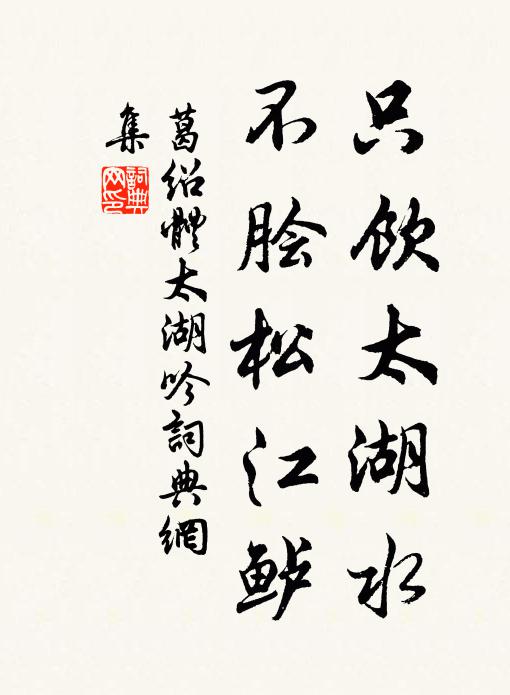 只饮太湖水
不脍松江鲈
葛绍體太湖吟詞典網
集
詞典
网印